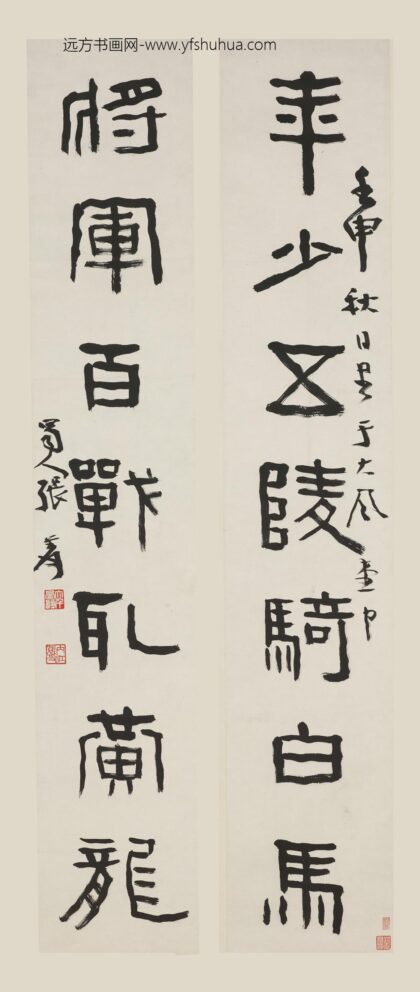 远方书画网-www.yfshuhua.com
年少五陵騎白馬
壬申秋日書于大風堂中
將軍百戰取黃龍
蜀人張爰